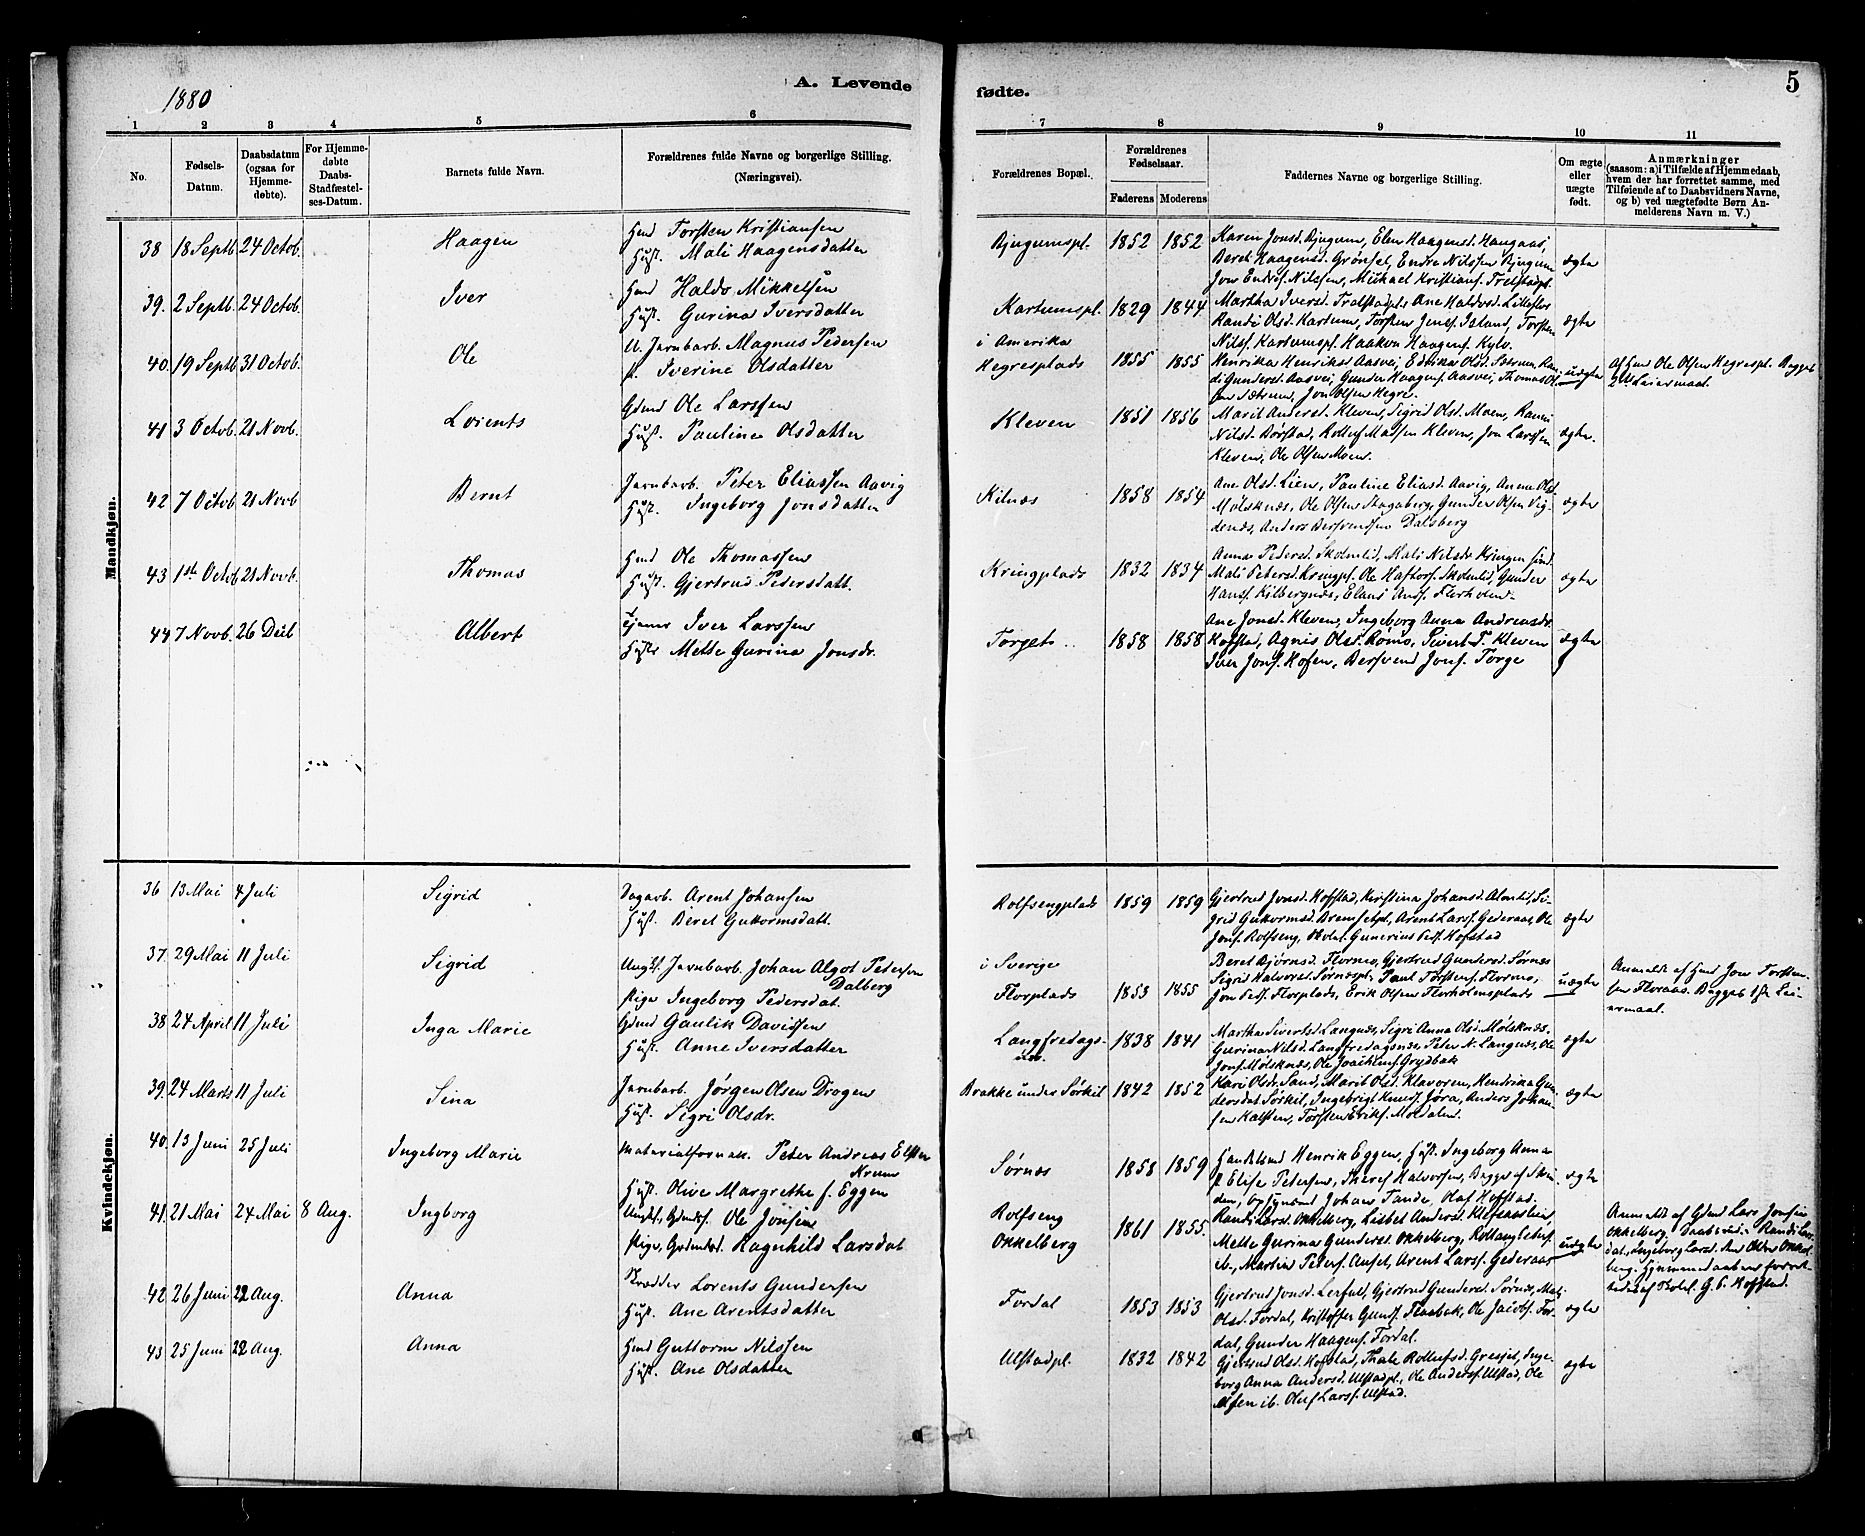 1880
A. Levende
fødte.
5
1 2 3 4 5 6 7 8 9 10 11
No.
Fødsels-Datum.
Daabsdatum (ogsaa for Hjemme-døbte).
For Hjemme-døbte Daabs-Stadfæstel-ses-Datum.
Barnets fulde Navn.
Forældrenes fulde Navne og borgerlige Stilling. (Næringsvei).
Forældrenes Bopæl.
Forældrenes Fødselsaar.
Faderens Moderens
Faddernes Navne og borgerlige Stilling.
Om ægte eller uægte født.
Anmærkninger
(saasom: a) i Tilfælde af Hjemmedaab, hvem der har forrettet samme, med Tilføiende af to Daabsvidners Navne, og b) ved uægtefødte Børn Anmelderens Navn m. V.)
Mandkjøn.
38 18 Septb 24 Octob. Haagen Hmd Torsten Kristiansen
Hust. Mali Haagensdatter
Bjugumspl. 1852 1852 Karen Jonsd. Bjugum, Elen Haagensd. Haugaas,
Beret Haagensd. Grönset, Endre Nilssen Bjugum
Jon Endres. Nilsen, Mickael Kristians. Trelstadpl. ægte
39. 2 Septb. 24 Octob. Iver Hmd Haldo Mikkelsen
Hust. Gurina Iversdatter
Kartumspl. 1829 1844 Martha Iversd. Tralstadpl, Ane Haldosd. Lilleflor
Randi Olsd. Kartum, Torsten Jens. Island, Torsten
Nilss. Kartumspl. Haakon Haagens. Kylv. ægte
40. 19 Septb 31 Octob. Ole U. Jarnbarb. Magnus Pedersen
p. Iverine Olsdatter
i Amerika
Hegresplads 1855 1855 Henrika Henriksd. Aasvei, Edrika Olsd.
di Gundersd. Aasvei, Gunder Haagens. Aasvei, Thomas Ol
Jon Olsen Hegre. uægte
Af Hmd Ole Olsen Hegrespl. Begges
Leiermaal.
41 3 Octob. 21 Novb. Lorents Gdmd Ole Larssen
Hust. Pauline Olsdatter
Kleven 1851 1856 Marit Andersd. Kleven, Sigrid Olsd. Moen, Rani
Nilsd. Börstad, Rolluf Madsen Kleven, Jon Larssen
Kleven, Ole Olsen Moen. ægte.
42 7 Octob 21 Novb Bernt Jarnbarb. Peter Eliassen Aavig
Hust. Ingeborg Jonsdatter
Kilnæs 1858 1854 Ane Olsd. Lien, Pauline Eliasd. Aavig, Anna Olsd
Mölsknæs, Ole Olsen Stagaberg, Gunder Olsen Vig-
denæs, Anders Bersvendsen Dalsberg ægte
43 1st Octob 21 Novb. Thomas Hmd Ole Thomassen
Hust. Gjertrud Petersdatt.
Kringplads 1832 1834 Anna Pedersd. Skolmlid, Mali Nilsd. Kringen
Mali Petersd. Kringpl. Ole Haftors. Skolmlid, Gunder
Hanss. Kilbergnæs, Elans Ands. Florholmen. ægte
44 7 Novb. 26 Decb Albert Tjener Iver Larssen
Hust. Mette Gurina Jonsdr.
Torgets.. 1858 1858 Ane Jonsd. Kleven, Ingeborg Anna Andreasdr.
Hoffstad, Agnis Olsd. Römo, Sivert T. Kleven
Iver Jons. Hofen, Bersvend Jons. Torge ægte
Kvindekjøn.
36 13 Mai 4 Juli Sigrid Dagarb. Arent Johansen
Hust. Beret Guttormsdatt.
Rolfsengplads 1859 1859 Gjertrud Jonsd. Hoffstad, Kristina Johansd. Almlid, Si-
grid Guttormsd. Bremsetpl, Arent Larss. Gederaas, Ole
Jons. Rolfseng, Gunerius Peds. Hofstad ægte
37. 29 Mai 11 Juli Sigrid Ungkf. Jarnbarb. Johan Algot Peterson
Dalberg
Pige Ingeborg Pedersdat.
i Sverige
Florplads 1853 1855 Beret Björnsd. Flornes, Gjertrud Gundersd. Sörnæs
Sigrid Halvorsd. Sörnæspl, Paul Torstens. Flornes,
Jon Peds. Florplads, Erik Olsen Florholmsplads uægte
Anmeldt af Hmd Jon Torsten-
sen Floraas. Begges 1ste Lei-
ermaal.
38 24 April 11 Juli Inga Marie Gdmd Gaulik Davidsen
Hust. Anne Iversdatter
Langfredags-
næs 1838 1841 Martha Sivertsd. Langnæs, Sigri Anna Olsd. Mölsknæs
Gurina Nilsd. Langfredagsnæs, Peter N. Langnæs, Ole
Jons. Mölsknæs, Ole Joachims. Grydbak ægte
39. 24 Marts 11 Juli Sina Jarnbarb. Jörgen Olsen Drogen
Hust. Sigri Olsdr.
Brakke under Sörkil 1842 1852 Kari Olsdr. Sand, Marit Olsd. Klavoren, Hendrika Gun-
dersdat Sörkil, Ingebrigt Knuds. Jöra, Anders Johan-
sen Kalsten, Torsten Eriks. Moldalen. ægte
40. 13 Juni 25 Juli Ingeborg Marie Materialforvalt. Peter Andreas Elster
Krum
Hust. Olive Margrethe f. Eggen
Sörnæs 1858 1859 Handelsmd Henrik Eggen, Hust. Ingeborg Anna
p. Elise Petersen, Halvorsen, Begge af
Opsynsmd Johan Tande, Olaf Hoffstad. ægte
41. 21 Mai 24 Mai 8 Aug. Ingborg Ungkf., Gdmds. Ole Jonsen
Pige, Gdmdsd. Ragnhild Larsdat
Rolfseng
Okkelberg 1861 1855 Randi Larsd. Okkelberg, Lisbet Andersd. Klefsaaslien,
Mette Gurina Gundersd. Okkelberg,
ib., Martin Peters. Aufet, Arent Larss. Gederaas uægte
Anmeldt af Gdmd Lars Jonsen
Okkelberg. Daabsvid. Randi Lars-
dat, Ingeborg Larsd. Okkel-
berg. Hjemmedaaben forret-
tedes af G. P. Hoffstad.
42 26 Juni 22 Aug. Anna Skrædder Lorents Gundersen
Hust. Ane Arentsdatter
Fordal 1853 1853 Gjertrud Jonsd. Lerfald, Gjertrud Gundersd. Sörnæs, Mali
Olsd. Fordal, Kristoffer Gunds. Flaabak, Ole Jacobs. For-
dal, Gunder Haagens. Fordal. ægte
43 25 Juni 22 Aug. Anna Hmd Guttorm Nilssen
Hust. Ane Olsdatter
Ulstadpl. 1832 1842 Gjertrud Olsd. Hofstad, Thale Rollufsd. Gresset, Inge-
borg Anna Andersd. Ulstadpl., Ole Anderss. Ulstad, Ole
Olsen ib. Oluf Larss. Ulstad. ægte